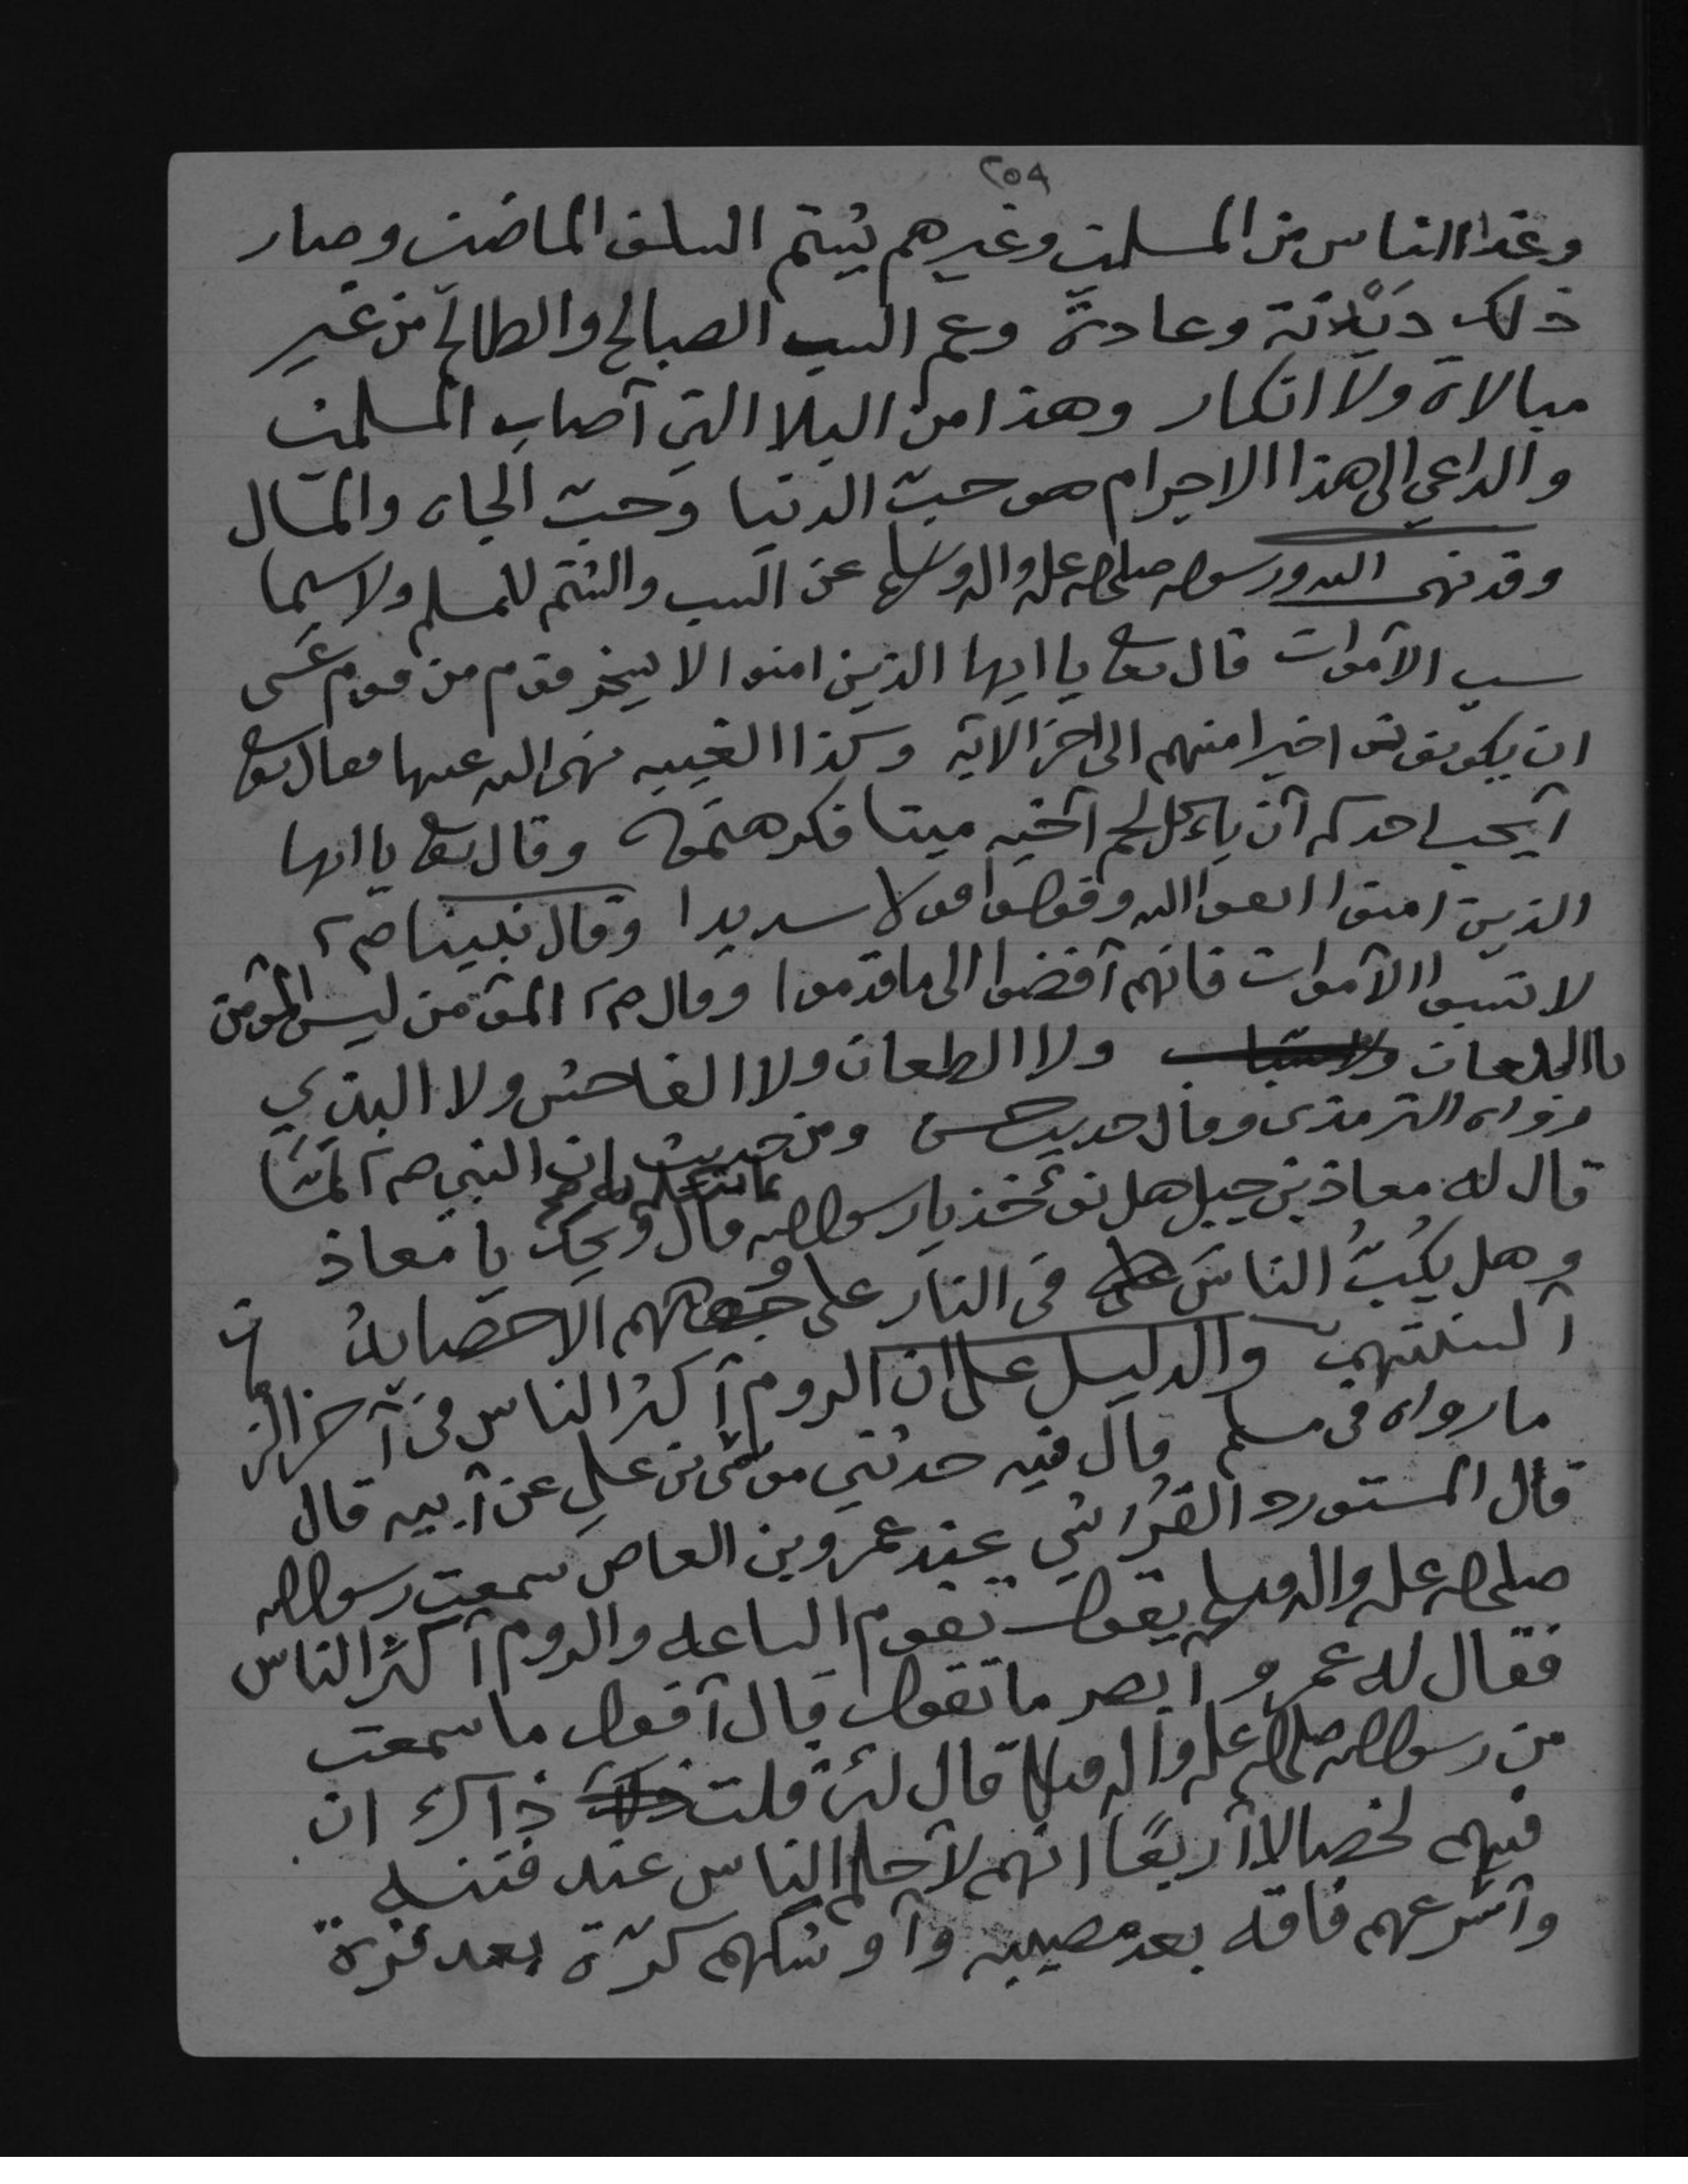 ٢٥٩
وغذا الناس من المسلمين وغيرهم يشتم السلف الماضين وصار
ذلك ديلانة وعادة وعم السب الصالح والطالح من غير
مبالاة ولا انكار وهذا من البلا التي أصاب المسلمين
والداعي الى هذا الاجرام هو حبّ الدنيا وحبّ الجاه والمال
وقد نهى الله ورسوله صلى الله عليه واله وسلم عن السب والشتم للمسلم ولا سيما
سب الأموات قال تعالى يا ايها الذين امنوا لا يسخر قوم من قوم عسى
ان يكونوا خيرا منهم الى اخر الاية وكذا الغيبه نهى الله عنها فقال تعالى
أيحب احدكم أن يأكل لحم أخيه ميتا فكرهتموه وقال تعالى يا ايها
الذين امنوا اتقوا الله وقولوا قولا سديدا وقال نبينا صم
لا تسبوا الأموات فانهم أفضوا الى ما قدموا وقال صم المؤمن ليس المؤمن
باللعان ولا الطعان ولا الفاحش ولا البذي
رواه الترمذى وقال حديث حسن ومن حديث ان النبي صم لمّا
قال له معاذ بن جبل هل نؤخذ يا رسول الله قال ويحك يا معاذ
وهل يكُبُّ الناسَ في النار على الا حصايدُ
ألسنتهم والدليل على ان الروم أكثر الناس في آخر الز
ما رواه في مسلم قال فيه حدثني موسى بن علي عن أبيه قال
قال المستورد القُرشي عند عمرو بن العاص سمعت رسول الله
صلى الله عليه واله وسلم يقول تقوم الساعه والروم أكثر الناس
فقال له عمرو أبصر ما تقول قال أقول ما سمعت
من رسول الله صلى الله عليه واله وسلم قال لئن قلت ذاك ان
فيهم لخصالا أربعًا انهم لأحلم الناس عند فتنه
وأسرعهم فاقه بعد مصيبه وأوشكهم كرّة بعد فرة